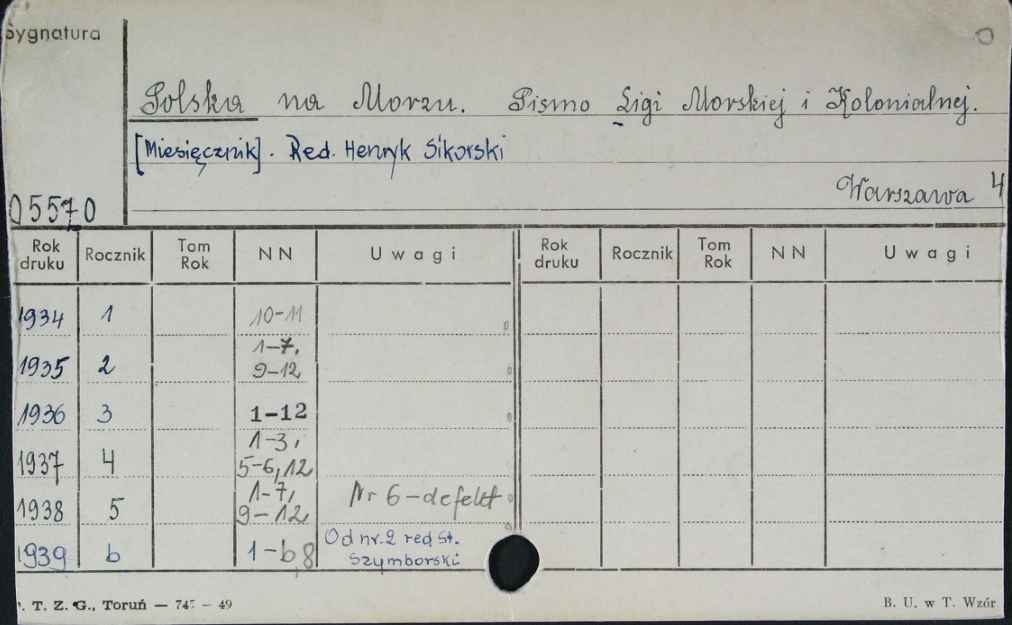 Sygnatura
Polska na Morzu. Pismo Ligi Morskiej i Kolonialnej.
[Miesięcznik]. Red. Henryk Sikorski
Warszawa 4
05570
Rok druku Rocznik Tom Rok NN Uwagi Rok druku Rocznik Tom Rok NN Uwagi
1934 1 10-11
1935 2 1-7, 9-12
1936 3 1-12
1937 4 1-3, 5-6, 12
1938 5 1-7, 9-12 Nr 6 - defekt
1939 6 1-6, 8 Od nr. 2 red. St. Szymborski
T. Z. G., Toruń — 49
B. U. w T. Wzór